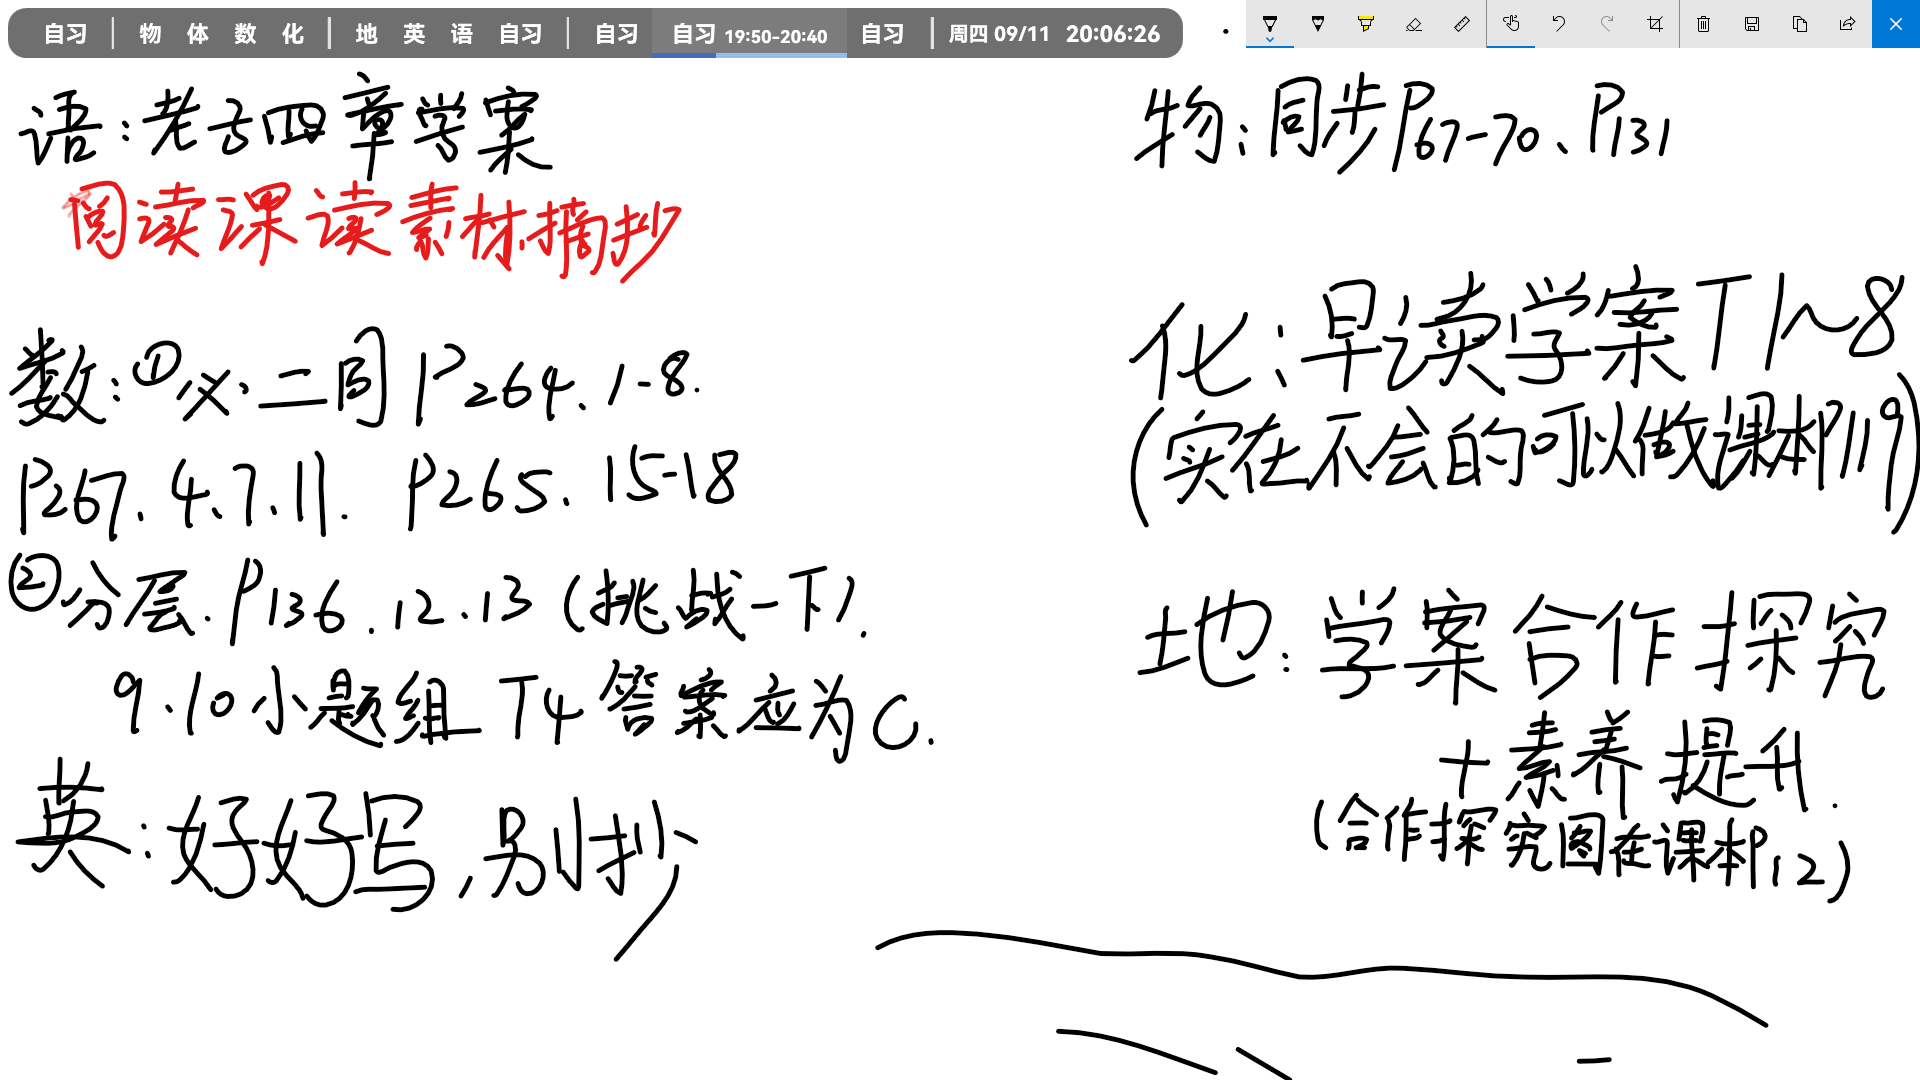 自习 | 物 体 数 化 | 地 英 语 自习 | 自习 自习 19:50-20:40 自习 | 周四 09/11 20:06:26
语:老子四章学案
阅读课读素材摘抄
数:①必.二同 P264. 1-8.
P267. 4.7.11. P265. 15-18
②分层. P136. 12.13 (挑战一下).
9.10小题组 T4答案应为C.
英:好好写,别抄
物:同步P67-70、P131
化:早读学案T1~8
(实在不会的可以做课本P119)
地:学案合作探究
+素养提升.
(合作探究图在课本P12)